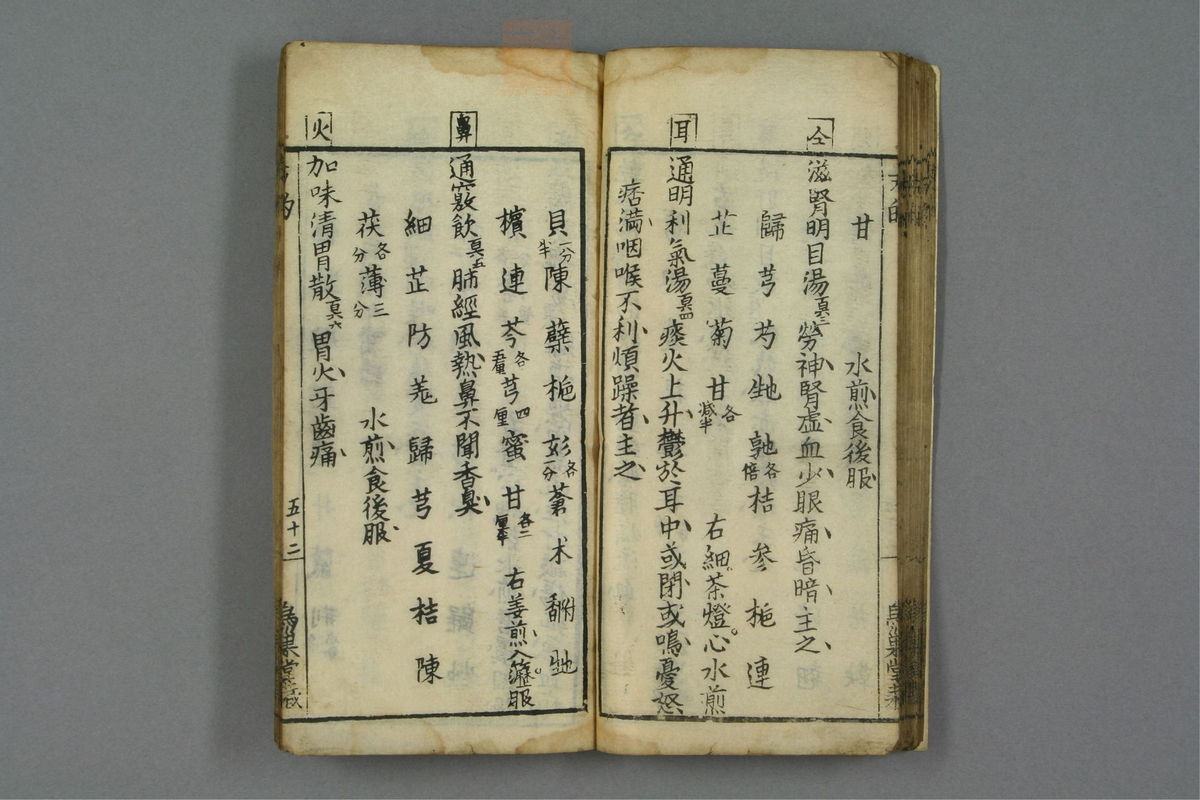 甘　水煎食後服
仝
滋腎明目湯真三勞神腎虛血少眼痛昏暗主之
歸芎芍 各倍 桔參梔連
芷蔓菊甘 各減半 右細茶燈心水煎
耳
通明利氣湯真四痰火上升鬱於耳中或閉或鳴憂怒
痞滿咽喉不利煩躁者主之
貝一分半陳蘗梔玄各一分蒼朮
檳連芩各五厘芎四厘蜜甘各二厘半右姜煎入瀝服
鼻
通竅飲真五肺經風熱鼻不聞香臭
細芷防羌歸芎夏桔陳
茯各分薄三分　水煎食後服
火
加味清胃散真六胃火牙齒痛
五十三